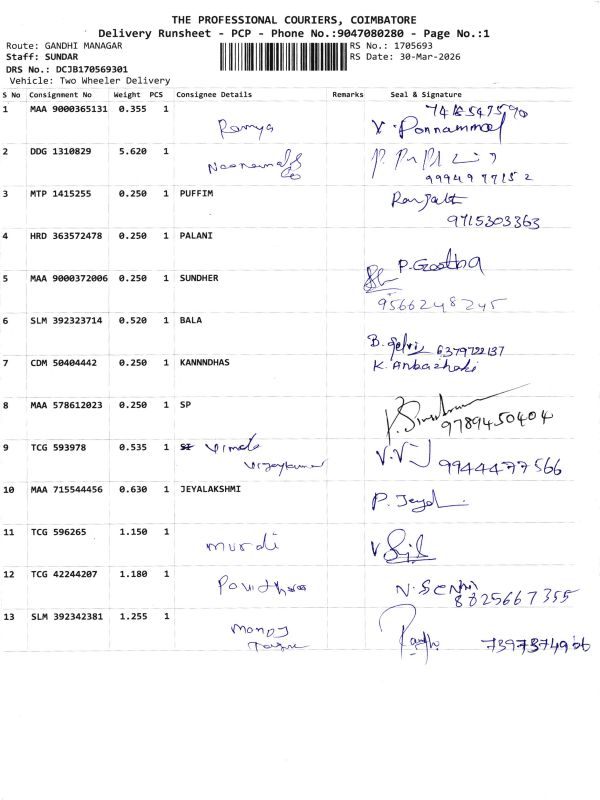 THE PROFESSIONAL COURIERS, COIMBATORE
Delivery Runsheet - PCP - Phone No.:9047080280 - Page No.:1
Route: GANDHI MANAGAR RS No.: 1705693
Staff: SUNDAR RS Date: 30-Mar-2026
DRS No.: DCJB170569301
Vehicle: Two Wheeler Delivery
S No Consignment No Weight PCS Consignee Details Remarks Seal & Signature
1 MAA 9000365131 0.355 1 Ramya V. Ponnammal
2 DDG 1310829 5.620 1
9994977152
3 MTP 1415255 0.250 1 PUFFIM
9715303363
4 HRD 363572478 0.250 1 PALANI
P. Geetha
5 MAA 9000372006 0.250 1 SUNDHER
9566248245
6 SLM 392323714 0.520 1 BALA
B. Selvi
7 CDM 50404442 0.250 1 KANNNDHAS K. Anbazhaki
8 MAA 578612023 0.250 1 SP
9789450404
9 TCG 593978 0.535 1 Vimala V.V
Vijaykumar 9944477566
10 MAA 715544456 0.630 1 JEYALAKSHMI
P. Jeyal
11 TCG 596265 1.150 1
Murali
12 TCG 42244207 1.180 1
8825667355
13 SLM 392342381 1.255 1
Manoj